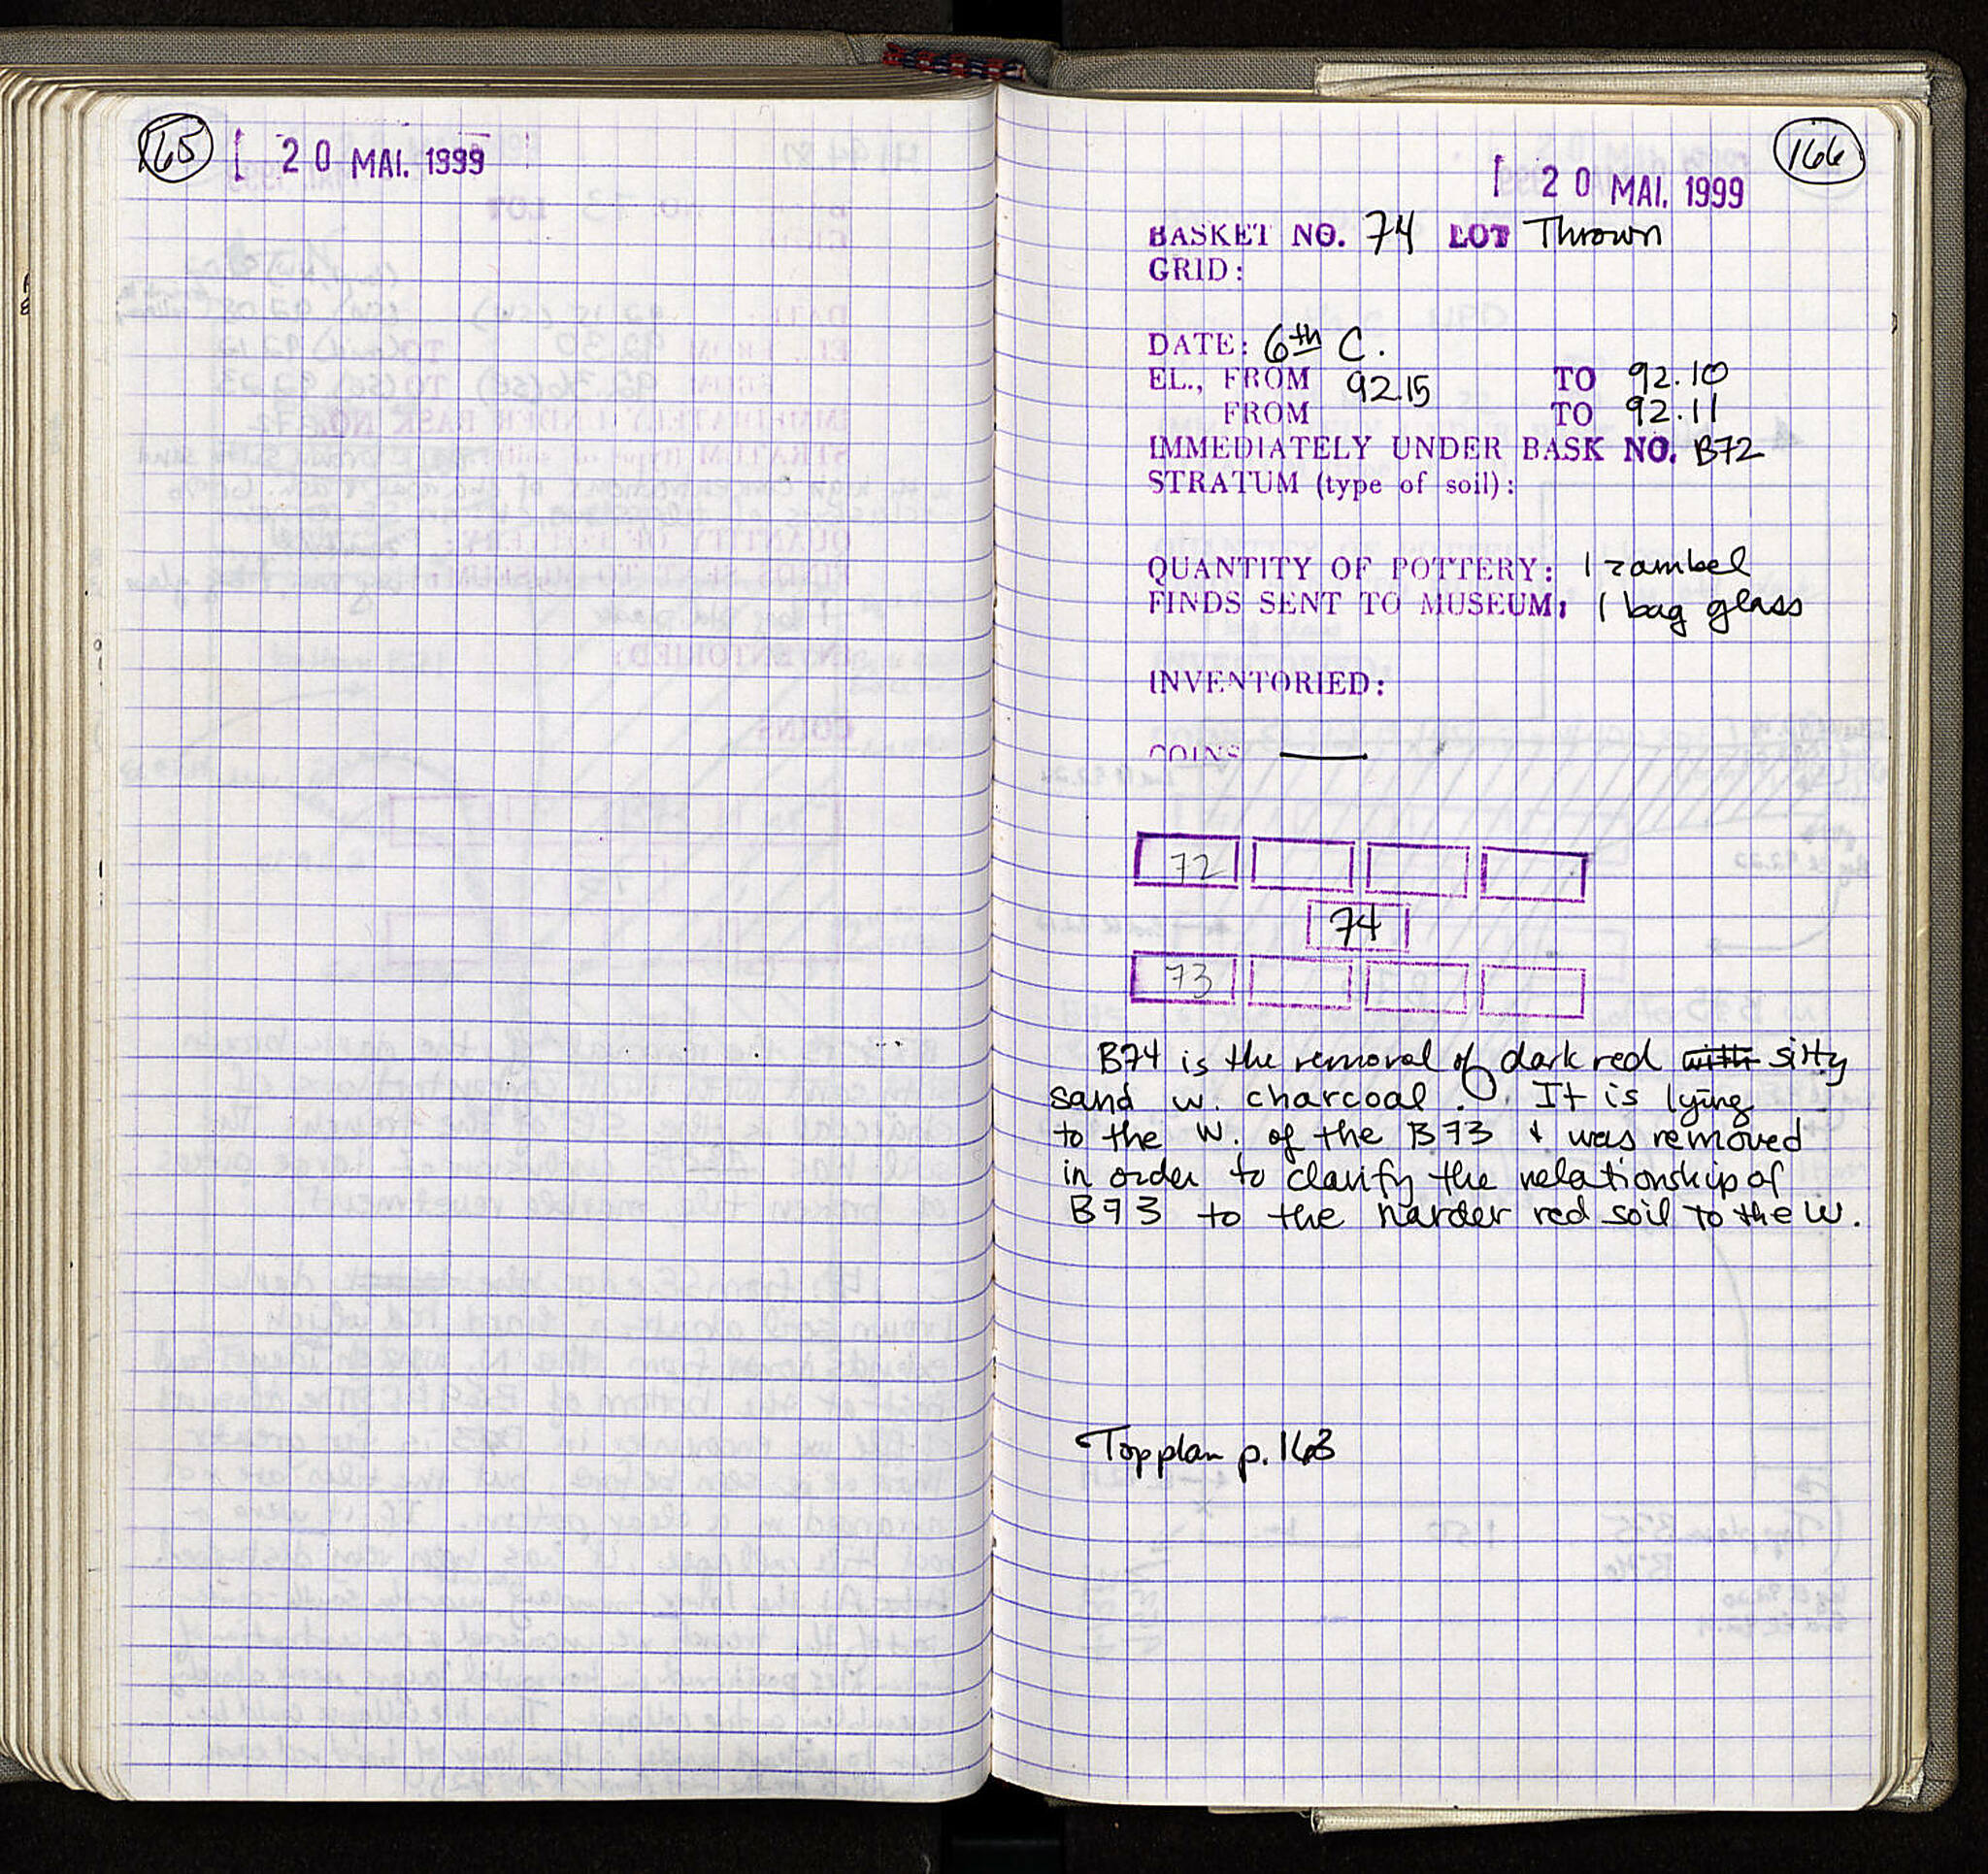 165
20 MAI. 1999
166
20 MAI. 1999
BASKET NO. 74 LOT Thrown
GRID:
DATE: 6th C.
EL., FROM 92.15 TO 92.10
FROM TO 92.11
IMMEDIATELY UNDER BASK NO. B72
STRATUM (type of soil):
QUANTITY OF POTTERY: 1 zambel
FINDS SENT TO MUSEUM: 1 bag glass
INVENTORIED:
COINS —
72
74
73
B74 is the removal of dark red with silty
sand w. charcoal. It is lying
to the W. of the B73 + was removed
in order to clarify the relationship of
B73 to the harder red soil to the W.
Top plan p. 163